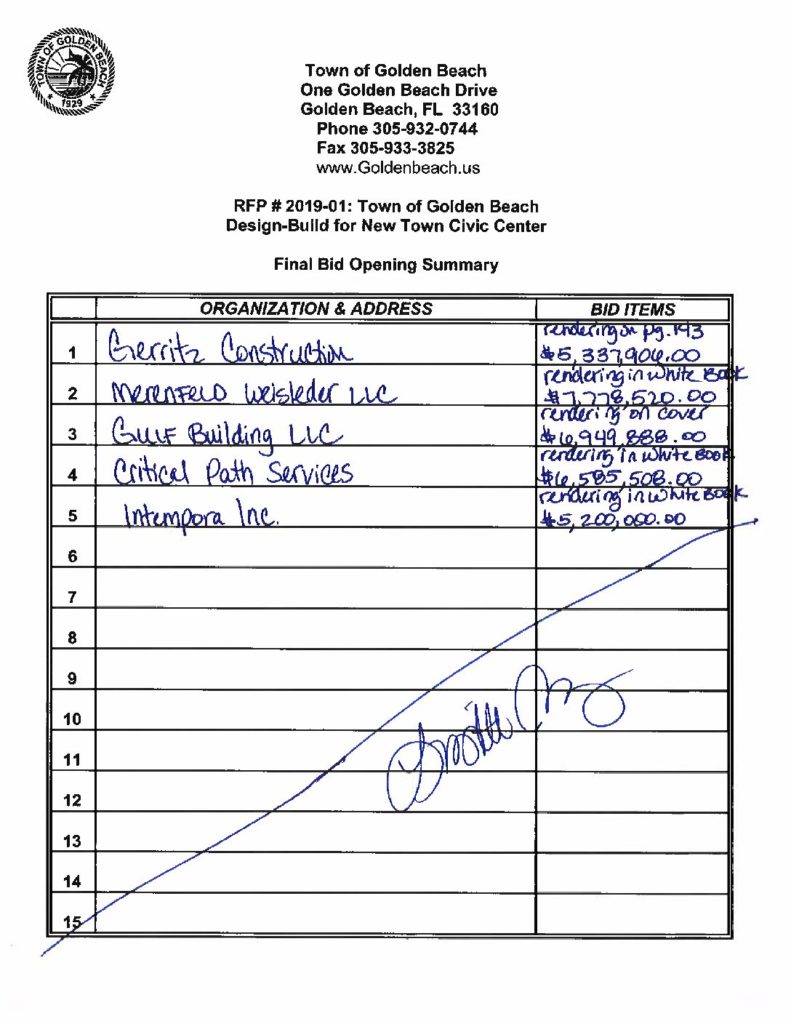 TOWN OF GOLDEN BEACH
1929
Town of Golden Beach
One Golden Beach Drive
Golden Beach, FL 33160
Phone 305-932-0744
Fax 305-933-3825
www.Goldenbeach.us
RFP # 2019-01: Town of Golden Beach
Design-Build for New Town Civic Center
Final Bid Opening Summary
ORGANIZATION & ADDRESS BID ITEMS
rendering on pg. 143
1 Gerritz Construction $5,337,904.00
rendering in White Book
2 Merenfeld Weisleder LLC $7,778,520.00
rendering on cover
3 Gulf Building LLC $6,949,888.00
rendering in White Book
4 Critical Path Services $6,585,508.00
rendering in White Book
5 Intempora Inc. $5,200,000.00
6
7
8
9
10
11
12
13
14
15